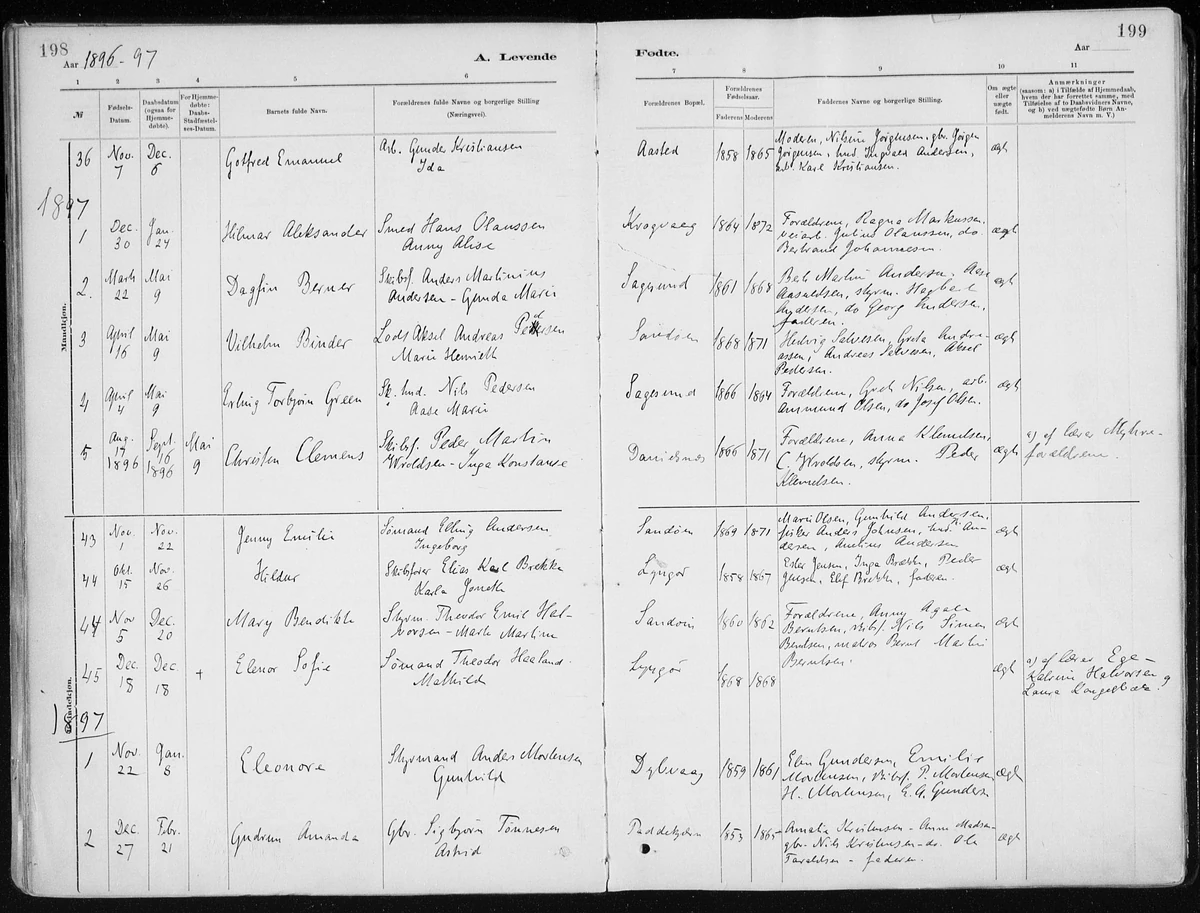 198
Aar 1896-97
A. Levende
Fødte.
Aar
199
1 2 3 4 5 6 7 8 9 10 11
№
Fødsels-
Datum.
Daabsdatum
(ogsaa for
Hjemme-
døbte).
For Hjemme-
døbte:
Daabs-
Stadfæstel-
ses-Datum.
Barnets fulde Navn.
Forældrenes fulde Navne og borgerlige Stilling
(Næringsvei).
Forældrenes Bopæl.
Forældrenes
Fødselsaar.
Faderens Moderens
Faddernes Navne og borgerlige Stilling.
Om ægte
eller
uægte
født.
Anmærkninger
(saasom: a) i Tilfælde af Hjemmedaab,
hvem der har forrettet samme, med
Tilføielse af to Daabsvidners Navne,
og b) ved uægtefødte Børn An-
melderens Navn m. V.)
Mandkjøn.
36 Nov. 7 Dec. 6 Gotfred Emanuel
Arb. Gunder Kristiansen
Ida
Aasted 1858 1865
Moderen, Nilsine Jørgensen, gbr. Jørgen
Jørgensen, hmd Ingvald Andersen,
arb. Karl Kristiansen.
ægt
1897
1 Dec. 30 Jan. 24 Hilmar Aleksander
Smed Hans Olaussen
Anny Alise
Krogvaag 1864 1872
Forældrene, Ragna Markussen,
veiarb. Julius Olaussen, do
Bertrand Johannesen.
ægt
2. Marts 22 Mai 9 Dagfin Berner
Skibsf. Anders Martinius
Andersen - Gunda Marie
Sagesund 1861 1868
Andersen, Aase
Aasuldsen, styrm.
Andersen, do Georg Andersen,
faderen.
ægt
3 April 16 Mai 9 Vilhelm Binder
Lods Aksel Andreas Pedersen
Marie Henriette
1868 1871
Hedvig Salvesen, Greta Andre-
assen, Andreas Salvesen, Aksel
Pedersen.
ægt
4 April 4 Mai 9 Erling Torbjørn Green
Sk. tmd. Nils Pedersen
Aase Marie
Sagesund 1866 1864
Forældrene, Nilsen, arb.
Ammund Olsen, do Josef Olsen.
ægt
5 Aug. 17 1896 Sept. 16 1896 Mai 9 Christen Clemens
Skibsf. Peder Martin
Wroldsen - Inga Konstanse
1866 1871
Forældrene, Anna Klemetsen,
C. Wroldsen, styrm. Peder
Klemetsen.
ægt
a) af lærer Myhre-
forældrene.
Kvindekjøn.
43 Nov. 1 Nov. 22 Jenny Emilie
Sømand Elling Andersen
Ingeborg
Sandøen 1869 1871
Marie Olsen, Gunhild Andersen,
fisker Anders Johnsen, An-
dersen, Andersen
ægt
44 Okt. 15 Nov. 26 Hildur
Skibsfører Elias Karl Brekka
Karla
Lyngør 1858 1867
Ester Jensen, Inga Brække, Peder
Jensen, Elef Brekke, faderen.
ægt
44 Nov 5 Dec. 20 Mary Bendikte
Styrm. Theodor Emil Hal-
vorsen - Marte Martine
Sandøen 1860 1862
Forældrene, Anny Agate
Berntsen, skibsf. Nils Simon
Berntsen, matros Bernt Martin
Berntsen.
ægt
45 Dec. 18 Dec. 18 + Elenor Sofie
Sømand Theodor Haaland
Mathilde
Lyngør 1868 1868
ægt
a) af lærer Ege-
Katrine Halvorsen og
Laura
1897
1 Nov. 22 Jan. 8 Eleonore
Styrmand Anders Mortensen
Gunhild
Dybvaag 1859 1861
Elen Gundersen, Emilie
Mortensen, skibsf. P. Mortensen,
H. Mortensen, E. A. Gundersen
ægt
2 Dec. 27 Febr. 21 Gudrun Amanda
Gbr. Sigbjørn Tønnesen
Astrid
1853 1865
Amalia Kristensen - Anne Madsen
gbr. Nils Kristensen - do. Ole
Taraldsen - faderen.
ægt